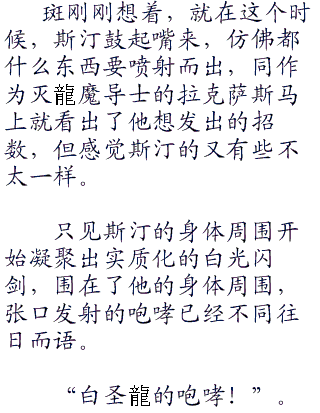 斑刚刚想着，就在这个时
候，斯汀鼓起嘴来，仿佛都
什么东西要喷射而出，同作
为灭龍魔导士的拉克萨斯马
上就看出了他想发出的招
数，但感觉斯汀的又有些不
太一样。
只见斯汀的身体周围开
始凝聚出实质化的白光闪
剑，围在了他的身体周围，
张口发射的咆哮已经不同往
日而语。
“白圣龍的咆哮！”。